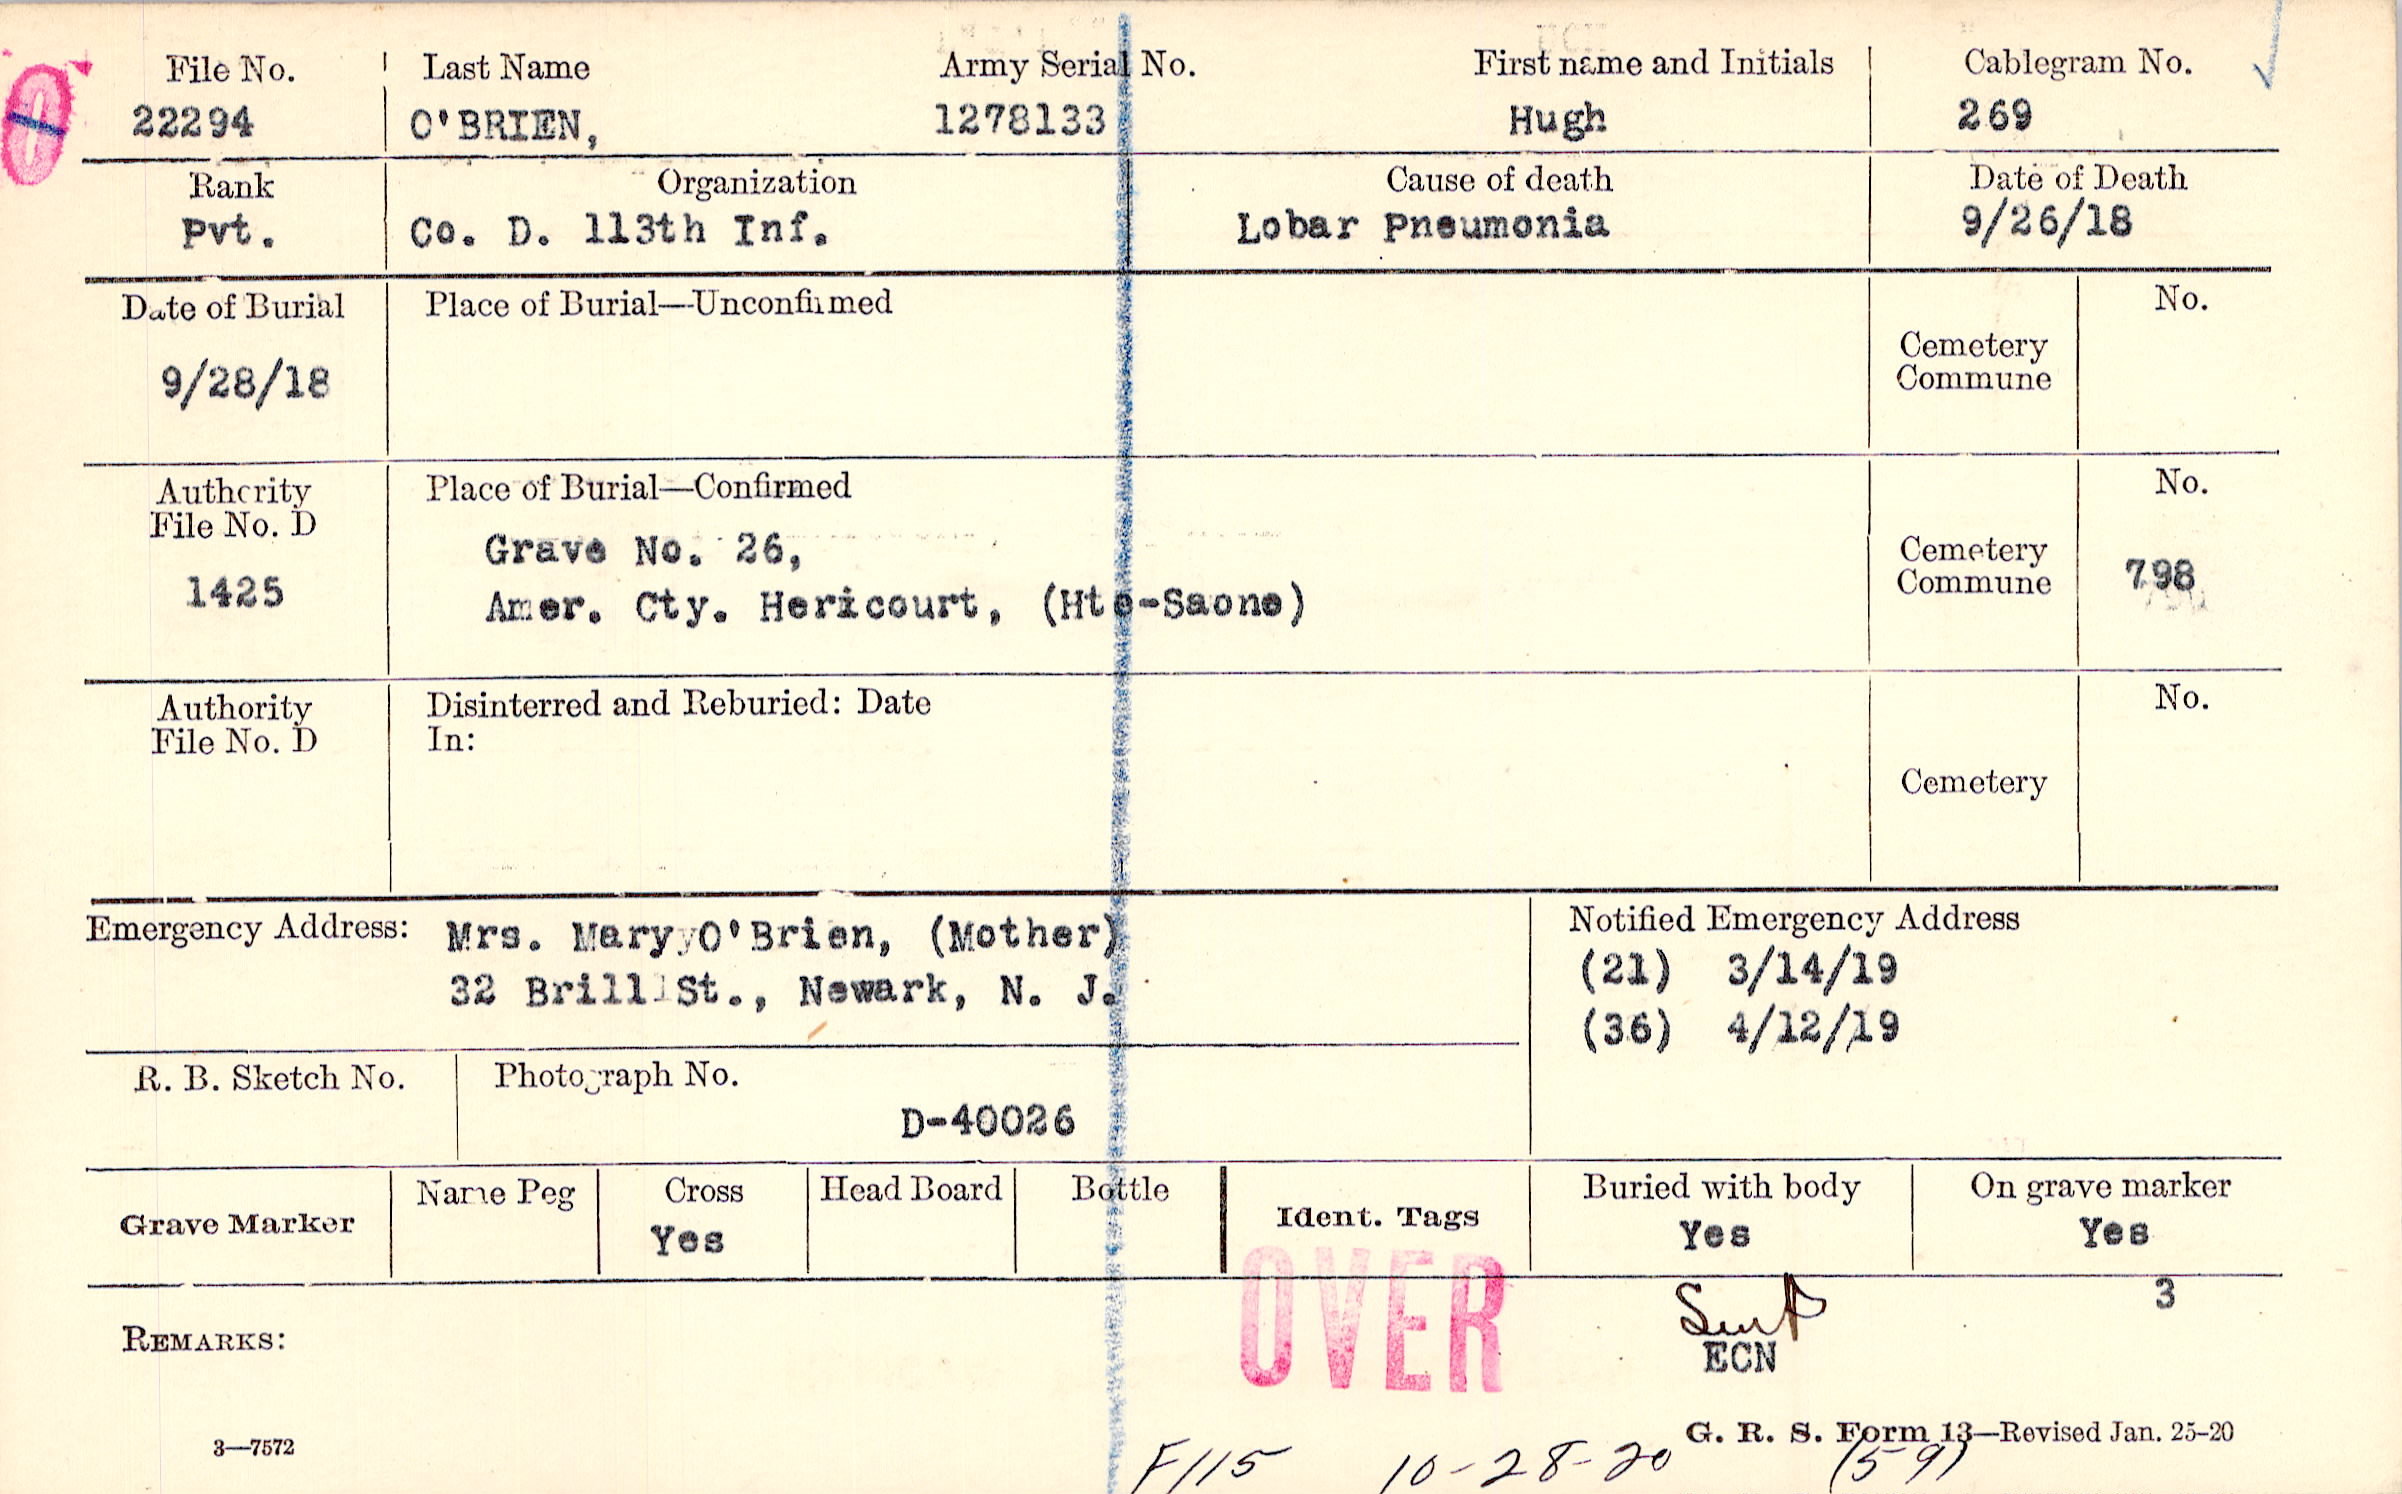 File No. Last Name Army Serial No. First name and Initials Cablegram No.
22294 O'BRIEN, 1278133 Hugh 269
Rank Organization Cause of death Date of Death
Pvt. Co. D. 113th Inf. Lobar Pneumonia 9/26/18
Date of Burial Place of Burial—Unconfirmed No.
9/28/18
Cemetery
Commune
Authority Place of Burial—Confirmed No.
File No. D
1425
Grave No. 26,
Amer. Cty. Hericourt, (Hte-Saone)
Cemetery
Commune
798
Authority Disinterred and Reburied: Date No.
File No. D In:
Cemetery
Emergency Address: Mrs. Mary O'Brien, (Mother)
32 Brill St., Newark, N. J.
Notified Emergency Address
(21) 3/14/19
(36) 4/12/19
R. B. Sketch No. Photograph No.
D-40026
Grave Marker Name Peg Cross Head Board Bottle Ident. Tags Buried with body On grave marker
Yes Yes Yes
3
OVER
ECN
REMARKS:
3—7572
G. R. S. Form 13—Revised Jan. 25-20
F115 10-28-20 (59)